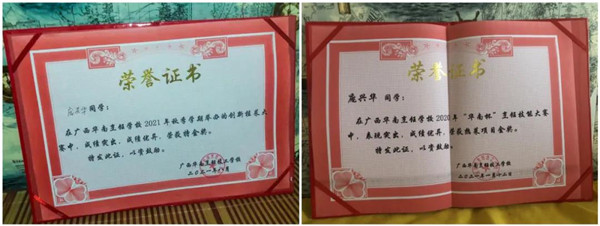 荣誉证书
同学：
在广西华南烹饪学校2021年秋季学期举办的创新冷菜大
赛中，成绩突出，成绩优异，荣获特金奖。
特发此证，以资鼓励。
广西华南烹饪技工学校
荣誉证书
庞兴华 同学：
在广西华南烹饪学校2020年“华南杯”烹饪技能大赛
中，表现突出，成绩优异，荣获热菜项目金奖。
特发此证，以资鼓励。
广西华南烹饪技工学校
二〇二一年一月十二日